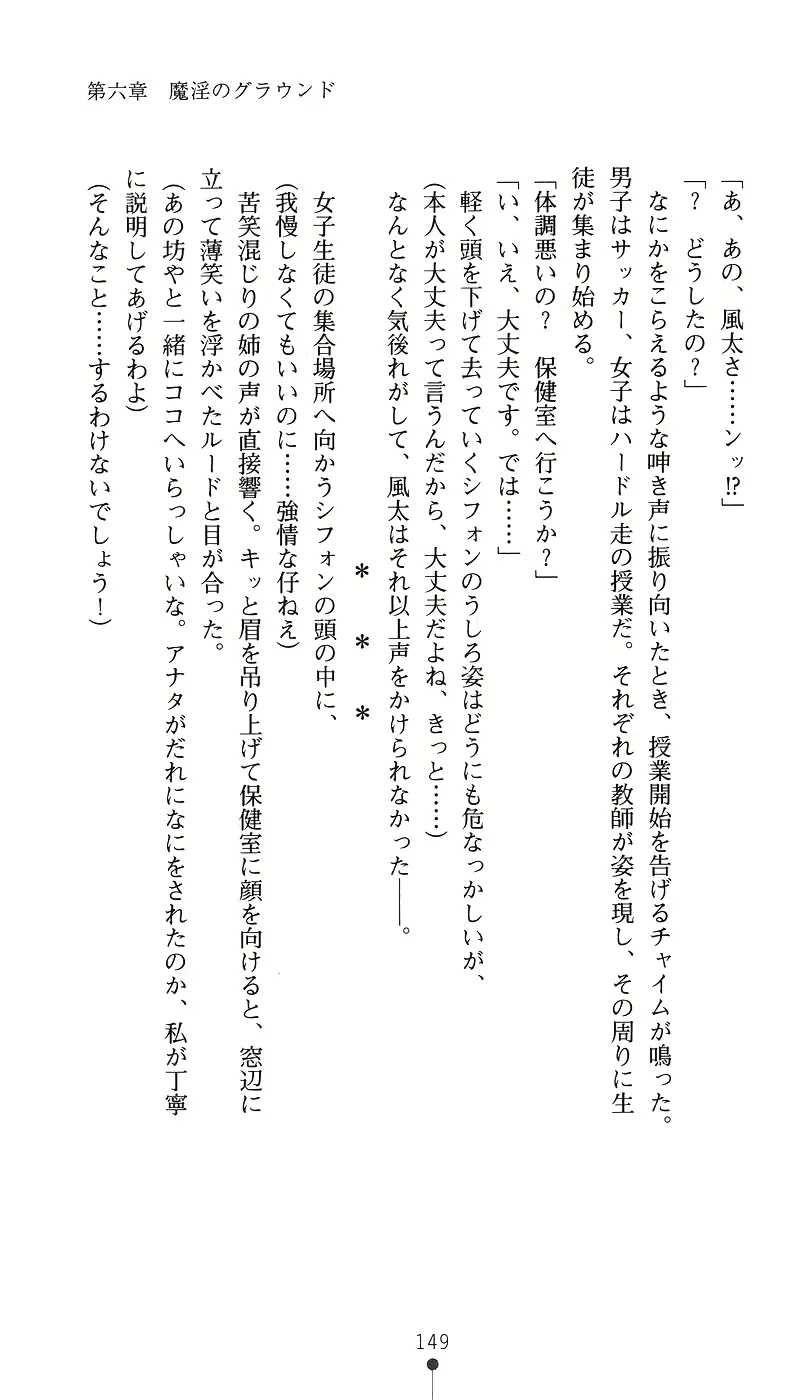 第六章　魔淫のグラウンド
「あ、あの、風太さ……ンッ!?」
「？　どうしたの？」
　なにかをこらえるような呻き声に振り向いたとき、授業開始を告げるチャイムが鳴った。
男子はサッカー、女子はハードル走の授業だ。それぞれの教師が姿を現し、その周りに生
徒が集まり始める。
「体調悪いの？　保健室へ行こうか？」
「い、いえ、大丈夫です。では……」
　軽く頭を下げて去っていくシフォンのうしろ姿はどうにも危なっかしいが、
（本人が大丈夫って言うんだから、大丈夫だよね、きっと……）
　なんとなく気後れがして、風太はそれ以上声をかけられなかった――。
＊　＊　＊
　女子生徒の集合場所へ向かうシフォンの頭の中に、
（我慢しなくてもいいのに……強情な仔ねえ）
　苦笑混じりの姉の声が直接響く。キッと眉を吊り上げて保健室に顔を向けると、窓辺に
立って薄笑いを浮かべたルードと目が合った。
（あの坊やと一緒にココへいらっしゃいな。アナタがだれになにをされたのか、私が丁寧
に説明してあげるわよ）
（そんなこと……するわけないでしょう！）
149